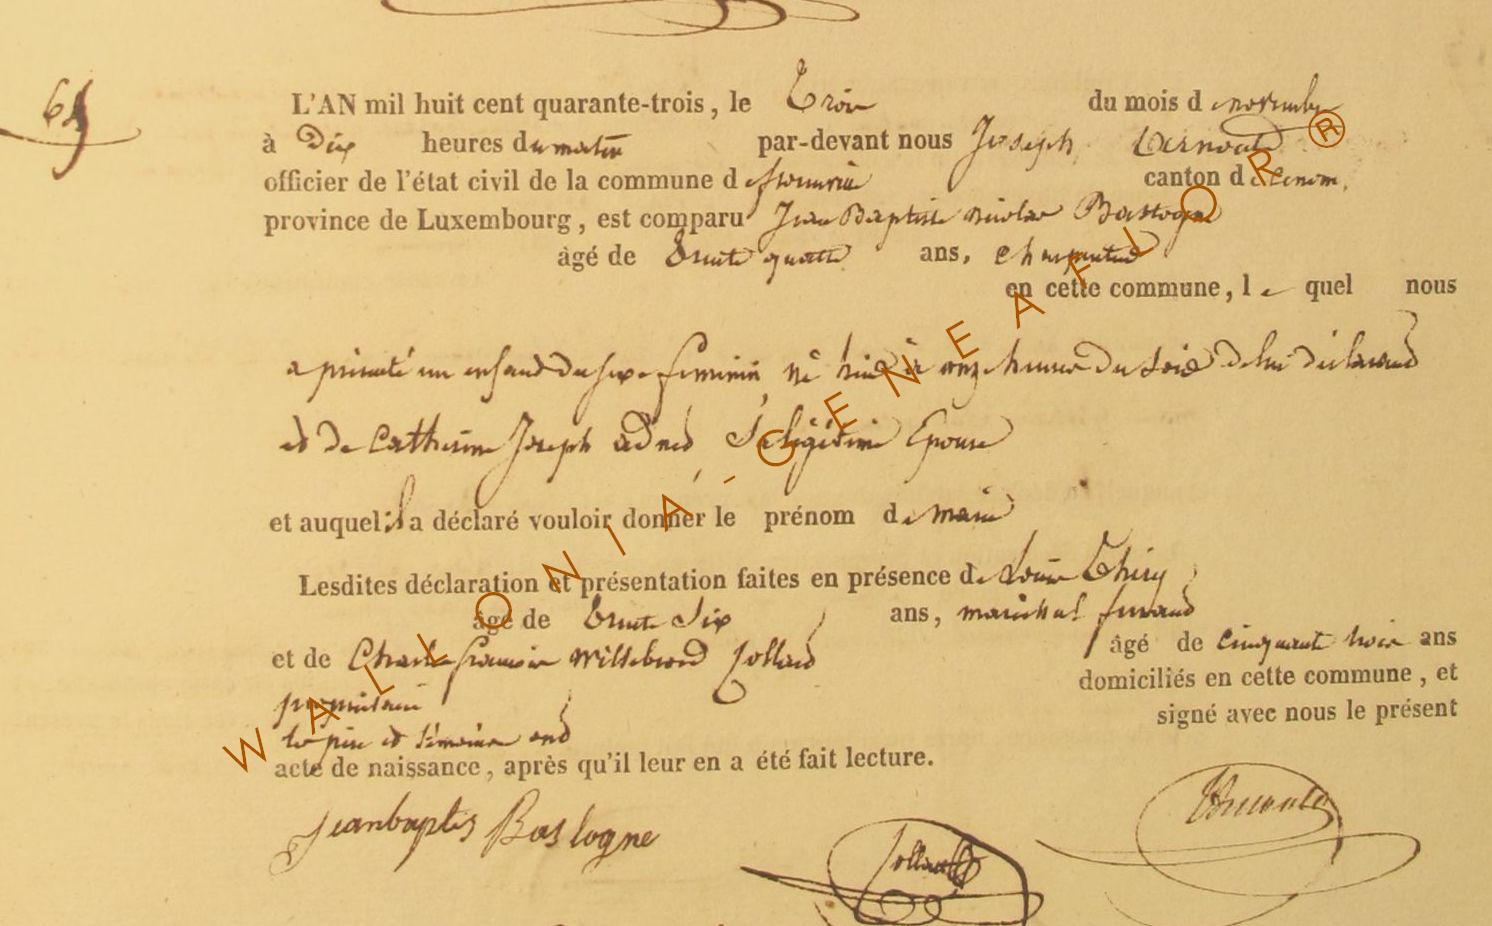 64
L'AN mil huit cent quarante-trois, le Trois du mois de novembre
à Dix heures du matin par-devant nous Joseph
officier de l'état civil de la commune de canton de
province de Luxembourg, est comparu Jean Baptiste nicolas Bastogne
âgé de trente quatre ans, charpentier
en cette commune, le quel nous
a présenté un enfant du sexe feminin, né hier à onze heures du soir de lui déclarant
et de Catherine Joseph adnet, sa légitime Epouse
et auquel il a déclaré vouloir donner le prénom de marie
Lesdites déclaration et présentation faites en présence de Louis Thiry
âgé de trente Six ans, maréchal ferrand
et de Charles françois Willebrord Collard âgé de cinquante trois ans
propriétaire domiciliés en cette commune, et
le père et témoins ont signé avec nous le présent
acte de naissance, après qu'il leur en a été fait lecture.
jeanbaptis Bastogne Collard
WALLONIA-GENEAFLOR®